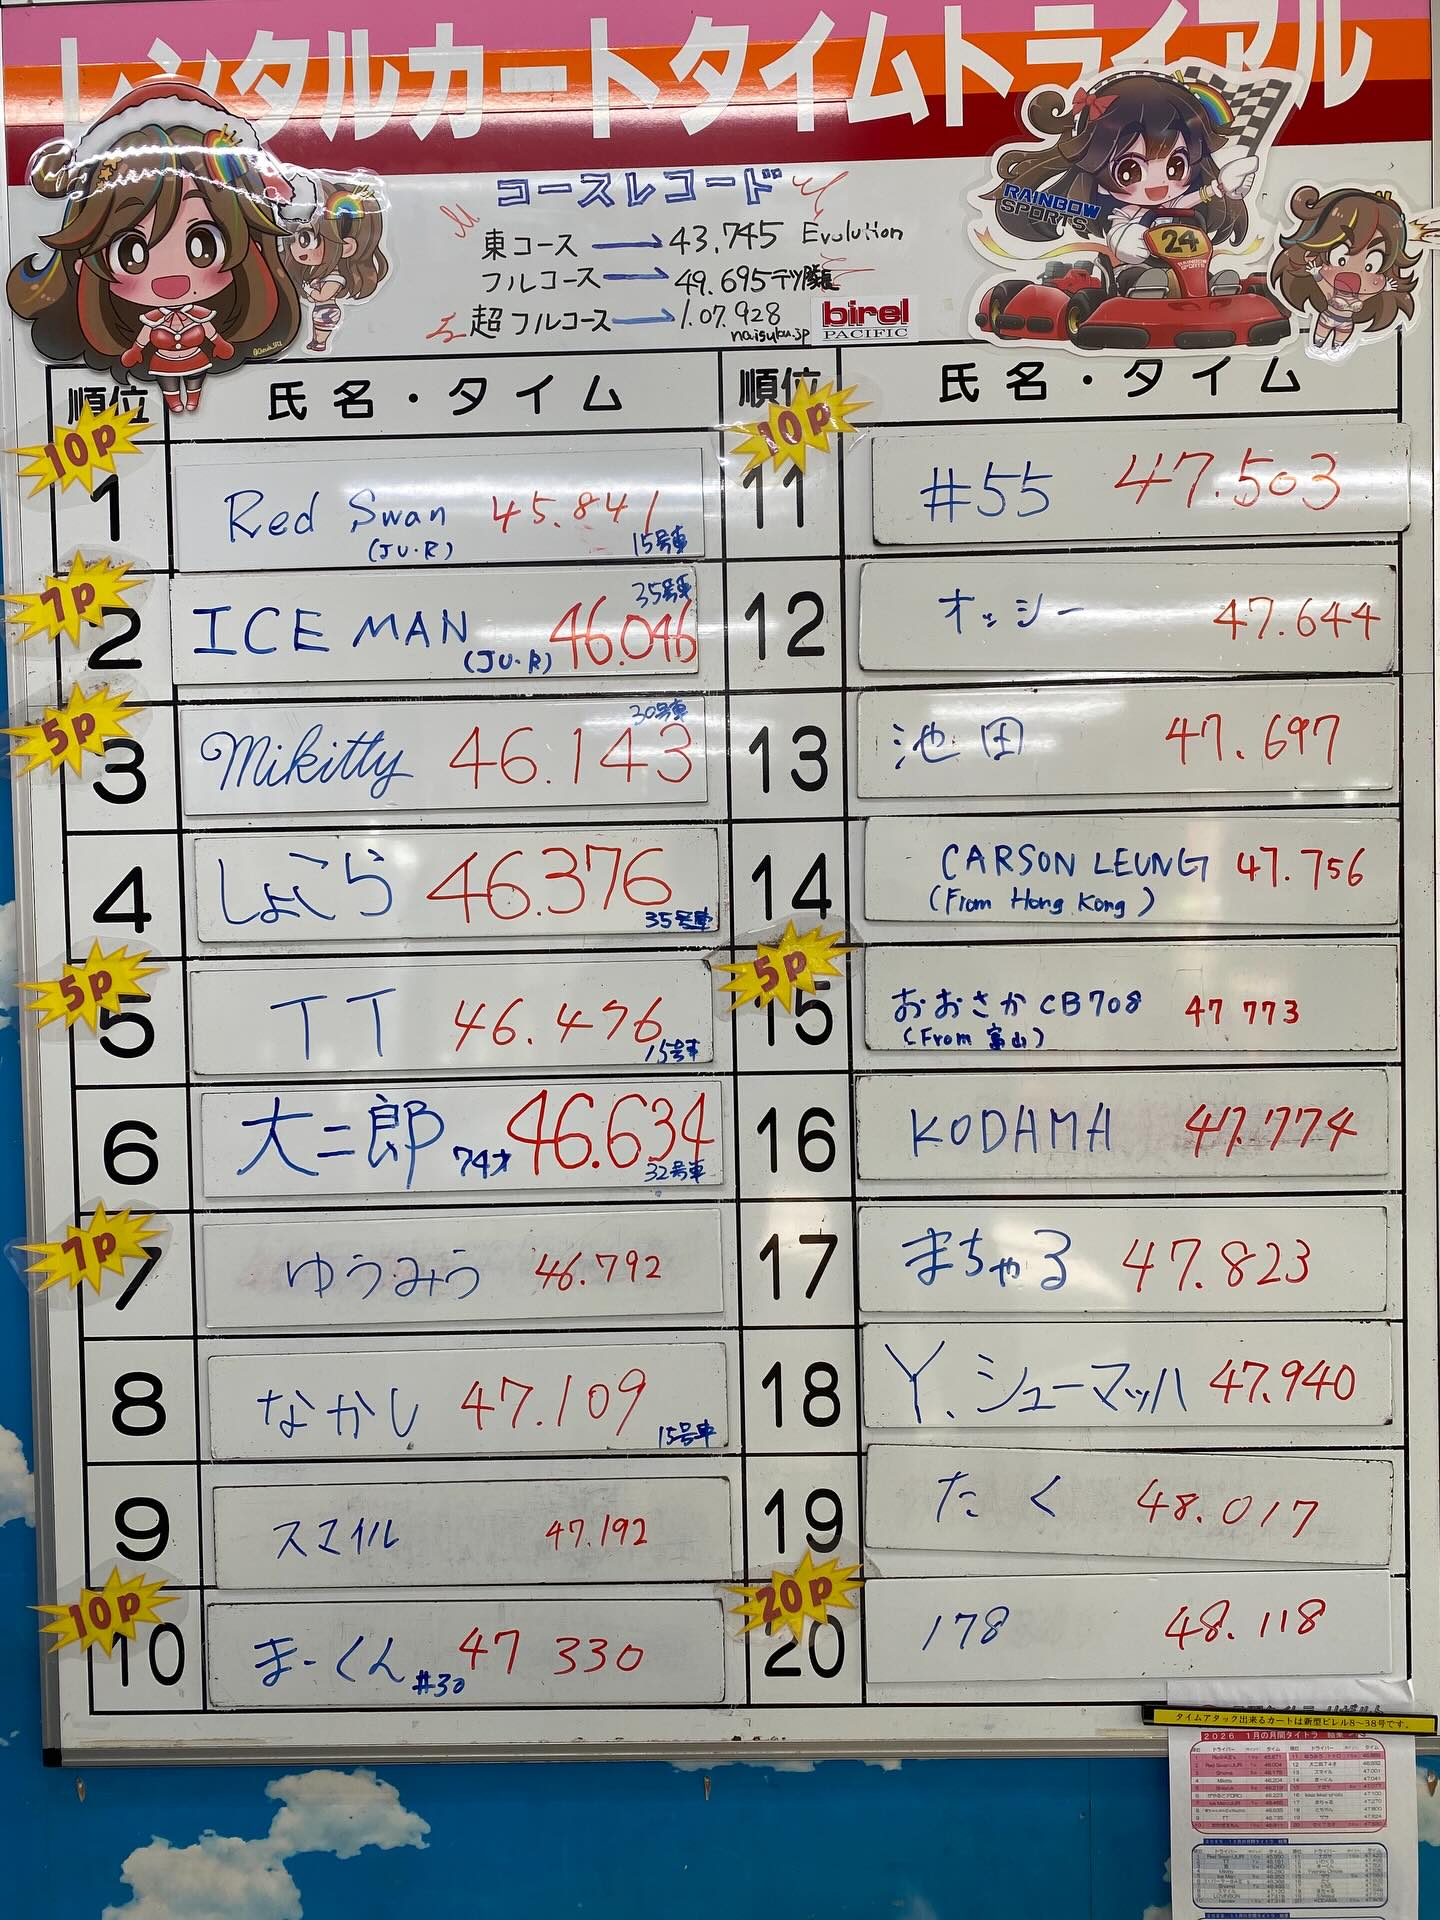 レンタルカートタイムトライアル
コースレコード
東コース → 43.745 Evolution
フルコース → 49.695 テツ隊長
超フルコース → 1.07.928
naisuku.jp
birel
PACIFIC
RAINBOW
SPORTS
24
順位 氏名・タイム
10p
1 Red Swan 45.841
(JU.R) 15号車
7p
35号車
2 ICE MAN (JU.R) 46.046
5p
30号車
3 Mikitty 46.143
4 しょこら 46.376
35号車
5p
5 TT 46.476
15号車
6 大二郎 74才 46.634
32号車
7p
7 ゆうみう 46.792
8 なかし 47.109
15号車
9 スマイル 47.192
10p
10 まーくん #30 47 330
順位 氏名・タイム
10p
11 #55 47.503
12 オッシー 47.644
13 池田 47.697
14 CARSON LEUNG 47.756
(From Hong Kong)
5p
15 おおさかCB708 47 773
(From 富山)
16 KODAMA 47.774
17 まちゃる 47.823
18 Y.シューマッハ 47.940
19 たく 48.017
20p
20 178 48.118
タイムアタック出来るカートは新型ビレル8～38号です。